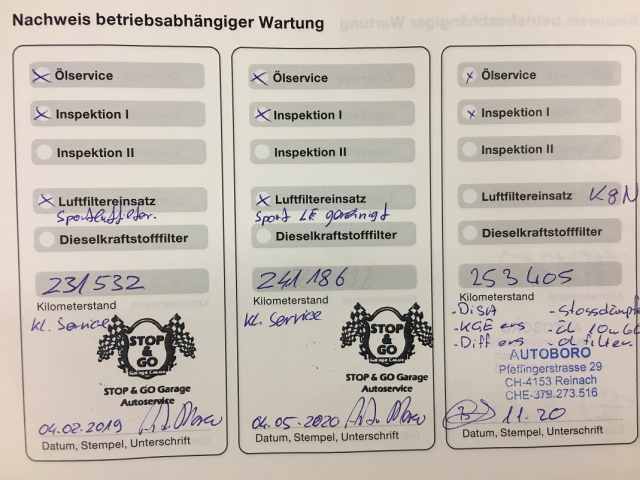 Nachweis betriebsabhängiger Wartung
Ölservice
Inspektion I
Inspektion II
Luftfiltereinsatz
Sportluftfilter.
Dieselkraftstofffilter
231532
Kilometerstand
kl. Service
STOP
&
GO
STOP & GO Garage
Autoservice
04.02.2019
Datum, Stempel, Unterschrift
Ölservice
Inspektion I
Inspektion II
Luftfiltereinsatz
Sport LF gereinigt
Dieselkraftstofffilter
241 186
Kilometerstand
kl. Service
STOP
&
GO
STOP & GO Garage
Autoservice
04.05.2020
Datum, Stempel, Unterschrift
Ölservice
Inspektion I
Inspektion II
Luftfiltereinsatz K&N
Dieselkraftstofffilter
253 405
Kilometerstand
- DISA - stossdämpfe
- KGE ers - öl 10w60
- Diff ers - öl filter
AUTOBORO
Pfeffingerstrasse 29
CH-4153 Reinach
CHE-379.273.516
11.20
Datum, Stempel, Unterschrift